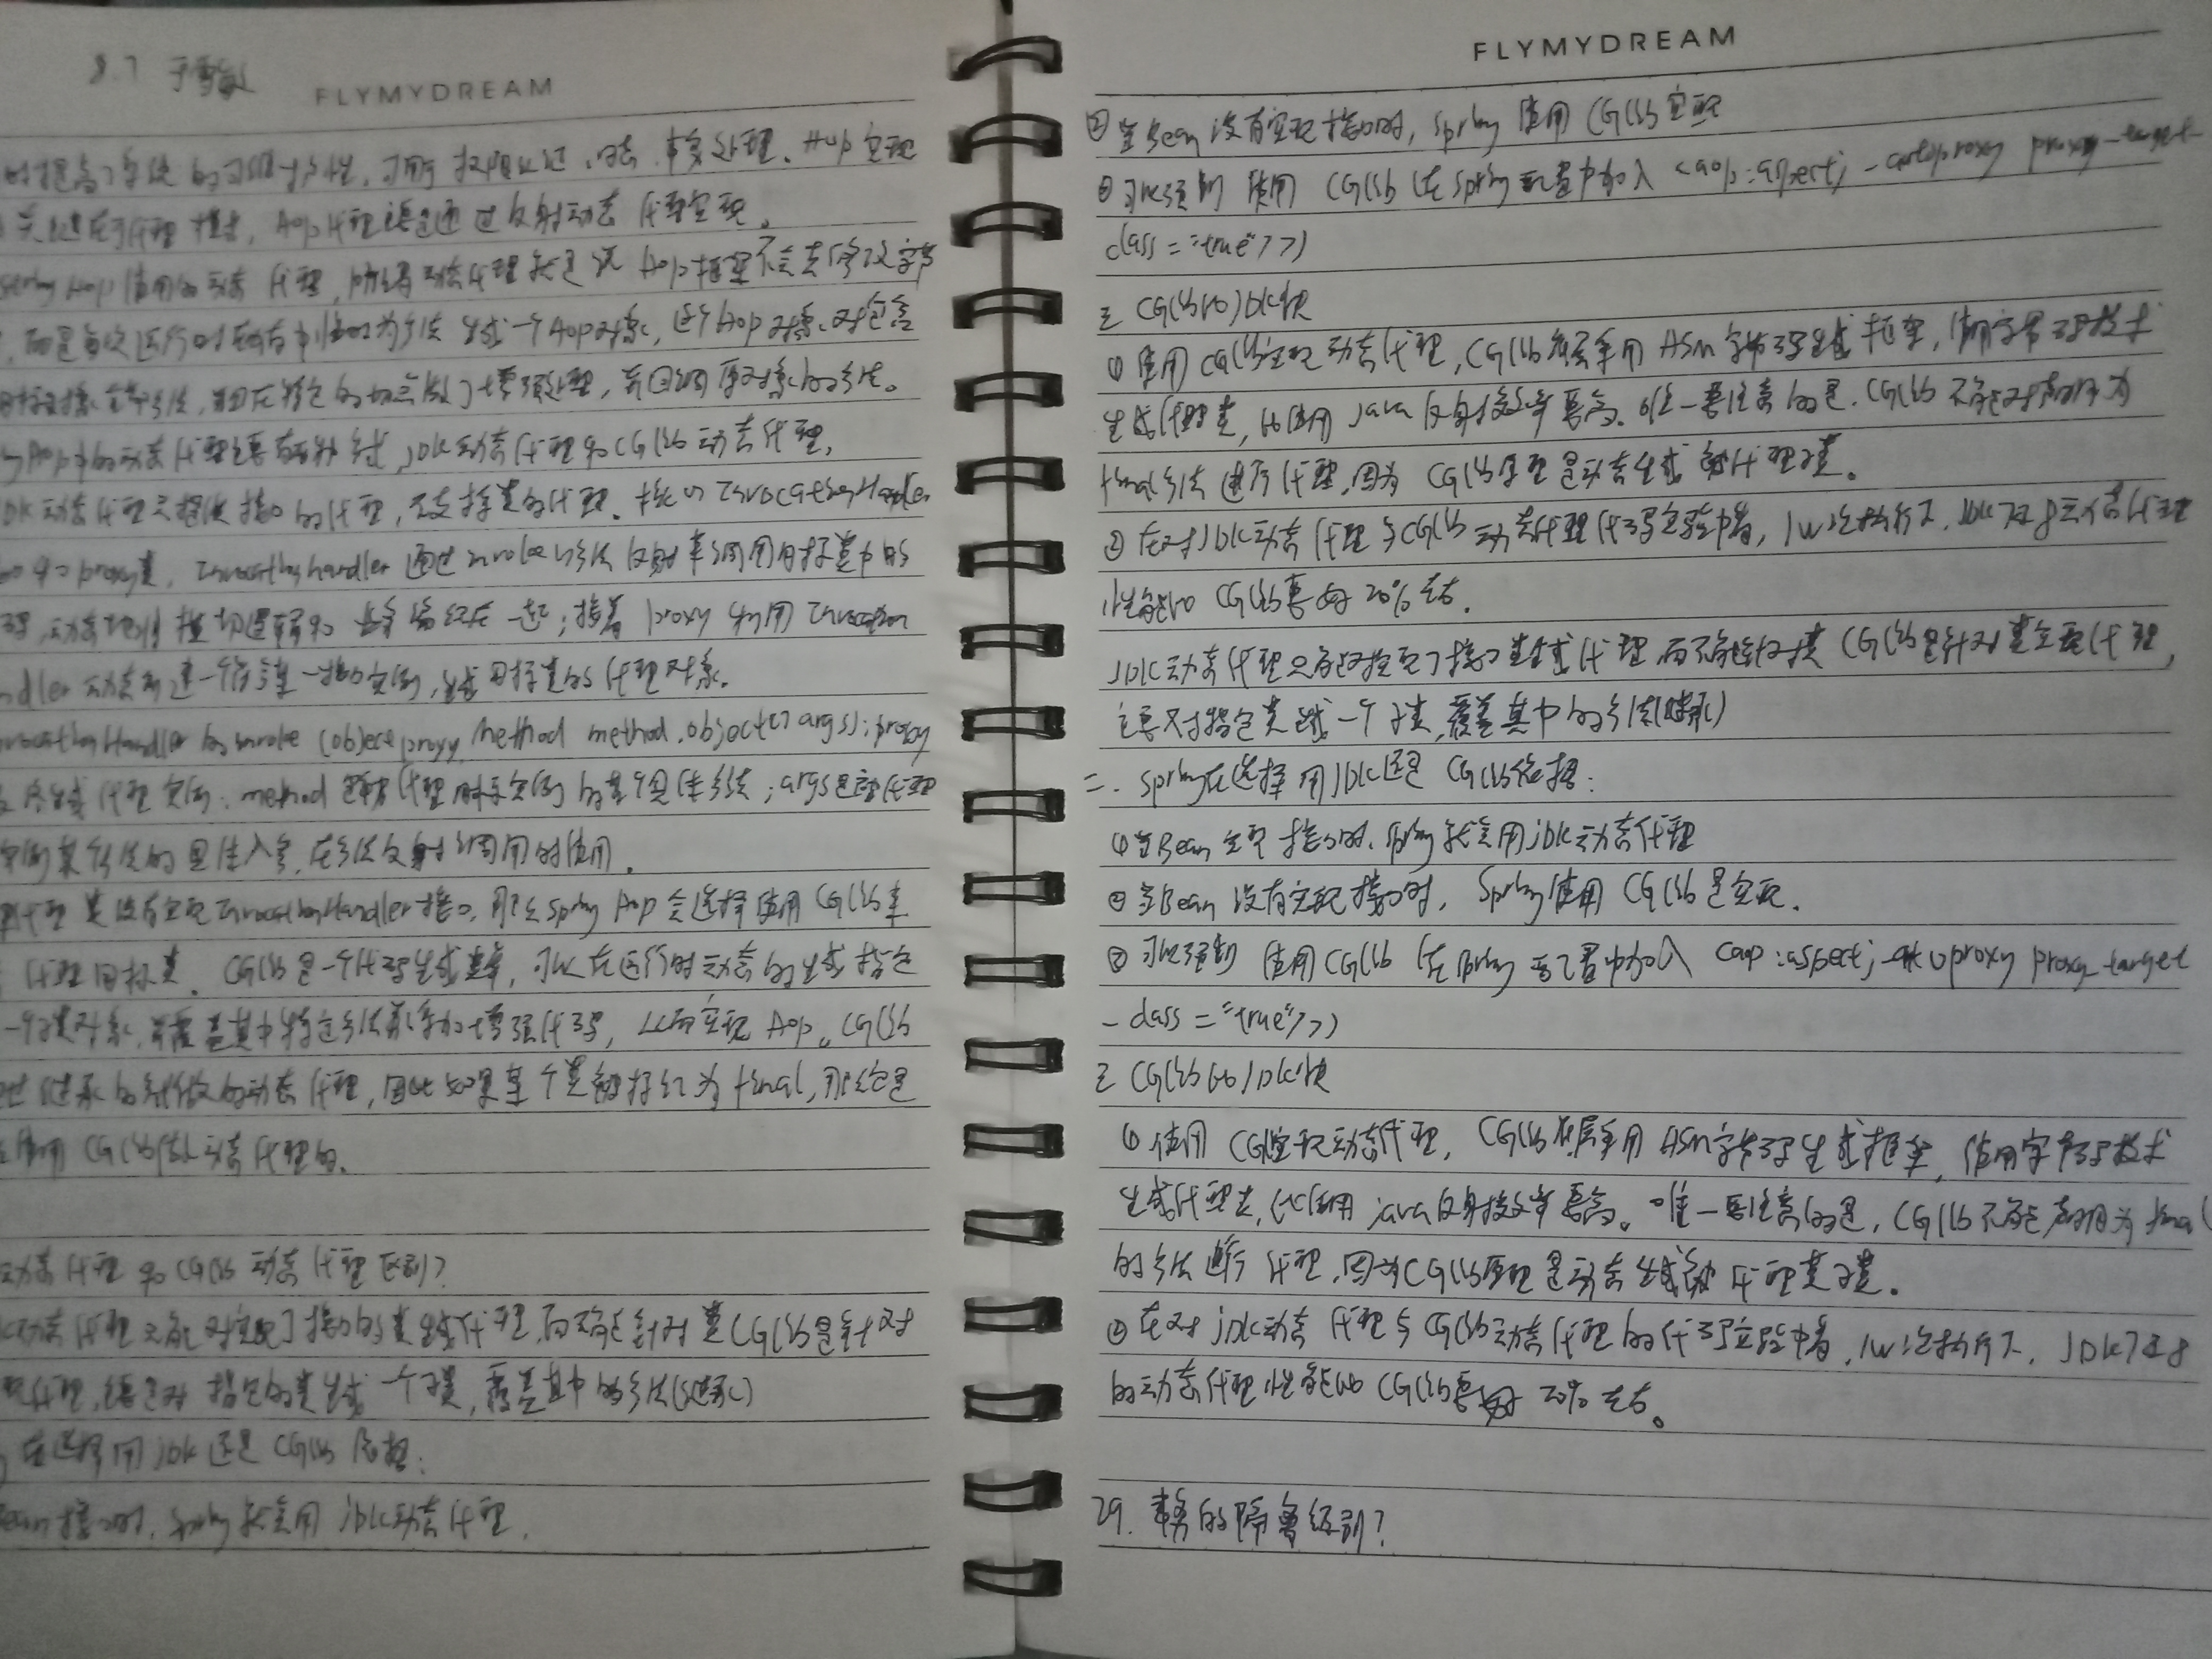 8.7
FLYMYDREAM
时提高了系统的可维护性,可用于权限认证、日志、事务处理。Aop实现
关键在于代理模式,Aop代理主要是通过反射动态代理实现。
Spring Aop使用的动态代理,所谓动态代理就是说Aop框架不会去修改字节
,而是每次运行时在内存中临时为方法生成一个Aop对象,这个Aop对象对包含
目标对象全部方法,并且在特定的切点做了增强处理,并回调原对象的方法。
Aop中的动态代理主要有两种方式,JDK动态代理和CGlib动态代理,
JDK动态代理只提供接口的代理,不支持类的代理。核心InvocationHandler
接口和proxy类,Invocationhandler通过invoke()方法反射来调用目标类中的
码,动态地将横切逻辑和业务编织在一起;接着proxy利用Invocation
ndler动态创建一个符合某一接口实例,生成目标类的代理对象。
InvocationHandler的invoke(object proxy, Method method, object[] args);proxy
是最终生成代理实例;method是被代理目标实例的某个具体方法;args是被代理
实例某个方法的具体入参,在方法反射调用时使用。
代理类没有实现InvocationHandler接口,那么Spring Aop会选择使用CGlib来
代理目标类。CGlib是一个代码生成类库,可以在运行时动态的生成指定
一个子类对象,并覆盖其中特定方法并添加增强代码,从而实现Aop。CGlib
过继承的方式做的动态代理,因此如果某个类被标红为final,那么它是
使用CGlib做动态代理的。
动态代理和CGlib动态代理区别?
动态代理只能对实现了接口的类生成代理,而不能针对类CGlib是针对
现代理,主要是对指定的类生成一个子类,覆盖其中的方法(继承)
在选择用jDK还是CGlib依据:
Bean接口时,Spring就会用jDK动态代理。
FLYMYDREAM
②当Bean没有实现接口时,Spring使用CGlib实现
③可以强制使用CGlib(在Spring配置中加入<aop:aspectj-autoproxy proxy-target-
class="true"/>)
三 CGlib比JDK快
①使用CGlib实现动态代理,CGlib底层采用ASM字节码生成框架,使用字节码技术
生成代理类,比使用Java反射效率要高。唯一要注意的是,CGlib不能对声明为
final方法进行代理,因为CGlib原理是动态生成被代理子类。
②在对JDK动态代理与CGlib动态代理代码实验中看,1W次执行下,JDK7及8动态代理
性能比CGlib要好20%左右。
JDK动态代理只能对实现了接口类生成代理,而不能针对类CGlib是针对类实现代理,
主要对指定类生成一个子类,覆盖其中的方法(继承)
二.Spring在选择用JDK还是CGlib依据:
①当Bean实现接口时,Spring就会用jDK动态代理
②当Bean没有实现接口时,Spring使用CGlib是实现.
③可以强制使用CGlib(在Spring配置中加入<aop:aspectj-autoproxy proxy-target
-class="true"/>)
三 CGlib比JDK快
①使用CGlib实现动态代理,CGlib底层采用ASM字节码生成框架,使用字节码技术
生成代理类,比使用java反射效率要高。唯一要注意的是,CGlib不能声明为final
的方法进行代理,因为CGlib原理是动态生成被代理类子类。
②在对jDK动态代理与CGlib动态代理的代码实验中看,1W次执行下,JDK7及8
的动态代理性能比CGlib要好20%左右。
29.事务的隔离级别?